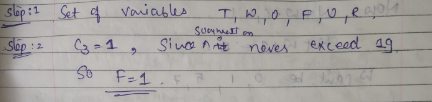 Step:1 Set of variables T, W, O, F, U, R.
Step:2 C3 = 1, Since summation never exceed 19
So F=1.